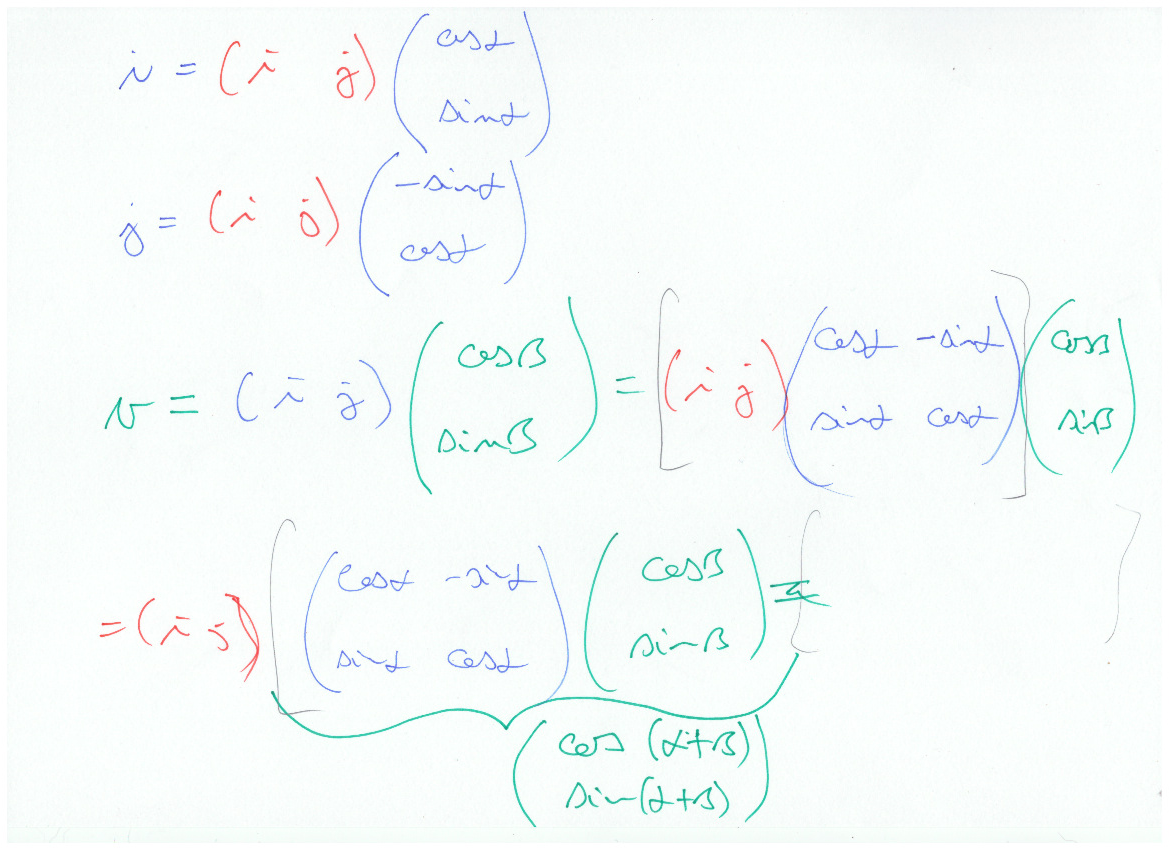 i = (i j) (cosα sinα)
j = (i j) (-sinα cosα)
v = (i j) (cosβ sinβ) = [(i j) (cosα -sinα sinα cosα)] (cosβ sinβ)
= (i j) [(cosα -sinα sinα cosα) (cosβ sinβ) = [ ]
(cos (α+β) sin(α+β))